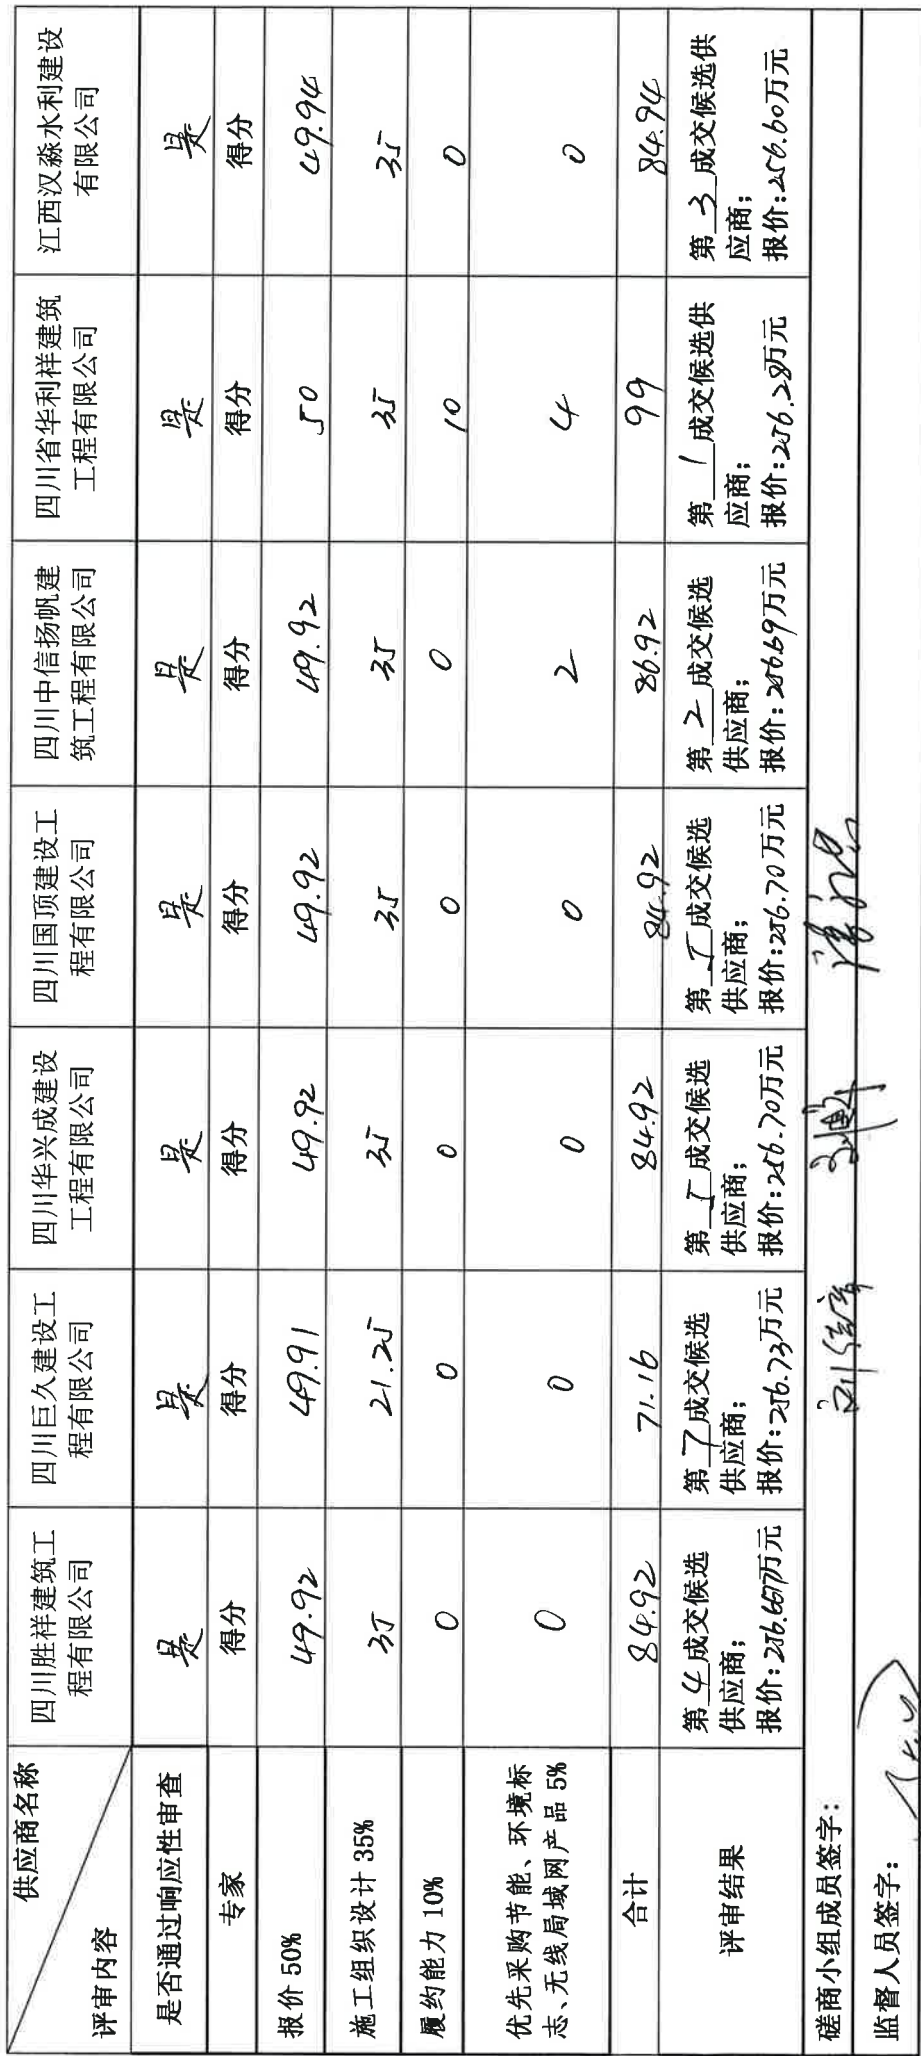 供应商名称
评审内容
四川胜祥建筑工
程有限公司
四川巨久建设工
程有限公司
四川华兴成建设
工程有限公司
四川国顶建设工
程有限公司
四川中信扬帆建
筑工程有限公司
四川省华利祥建筑
工程有限公司
江西汉淼水利建设
有限公司
是否通过响应性审查 是 是 是 是 是 是 是
专家 得分 得分 得分 得分 得分 得分 得分
报价 50% 49.92 49.91 49.92 49.92 49.92 50 49.94
施工组织设计 35% 35 21.25 35 35 35 35 35
履约能力 10% 0 0 0 0 0 10 0
优先采购节能、环境标
志、无线局域网产品 5% 0 0 0 0 2 4 0
合计 84.92 71.16 84.92 84.92 86.92 99 84.94
评审结果
第 4 成交候选
供应商；
报价：256.667万元
第 7 成交候选
供应商；
报价：256.73万元
第 5 成交候选
供应商；
报价：256.70万元
第 5 成交候选
供应商；
报价：256.70万元
第 2 成交候选
供应商；
报价：256.69万元
第 1 成交候选供
应商；
报价：256.28万元
第 3 成交候选供
应商；
报价：256.60万元
磋商小组成员签字：
监督人员签字：